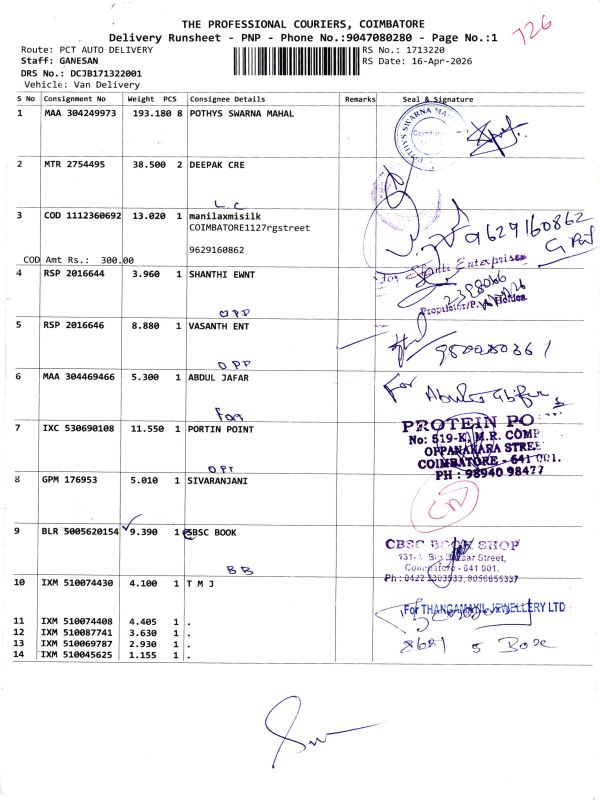 THE PROFESSIONAL COURIERS, COIMBATORE
Delivery Runsheet - PNP - Phone No.:9047080280 - Page No.:1
726
Route: PCT AUTO DELIVERY
RS No.: 1713220
Staff: GANESAN
RS Date: 16-Apr-2026
DRS No.: DCJB171322001
Vehicle: Van Delivery
S No Consignment No Weight PCS Consignee Details Remarks Seal & Signature
1 MAA 304249973 193.180 8 POTHYS SWARNA MAHAL
2 MTR 2754495 38.500 2 DEEPAK CRE
L.C
3 COD 1112360692 13.020 1 manilaxmisilk
COIMBATORE1127rgstreet
9629160862
9629160862
G Pay
COD Amt Rs.: 300.00
For Shanti Enterprises
4 RSP 2016644 3.960 1 SHANTHI EWNT
OPP
5 RSP 2016646 8.880 1 VASANTH ENT
OPP
6 MAA 304469466 5.300 1 ABDUL JAFAR
For
7 IXC 530690108 11.550 1 PORTIN POINT
PROTEIN PO
No: 519-K, M.R. COMP
OPPANAKARA STREE
COIMBATORE - 641 001.
PH : 98940 98477
8 GPM 176953 5.010 1 SIVARANJANI
9 BLR 5005620154 9.390 1 SBSC BOOK
BB
CBSC BOOK SHOP
Coimbatore - 641 001.
Ph : 0422 2303533, 8056655337
10 IXM 510074430 4.100 1 T M J
For THANGAMAYIL JEWELLERY LTD
11 IXM 510074408 4.405 1 .
12 IXM 510087741 3.630 1 .
13 IXM 510069787 2.930 1 .
14 IXM 510045625 1.155 1 .
5 Box